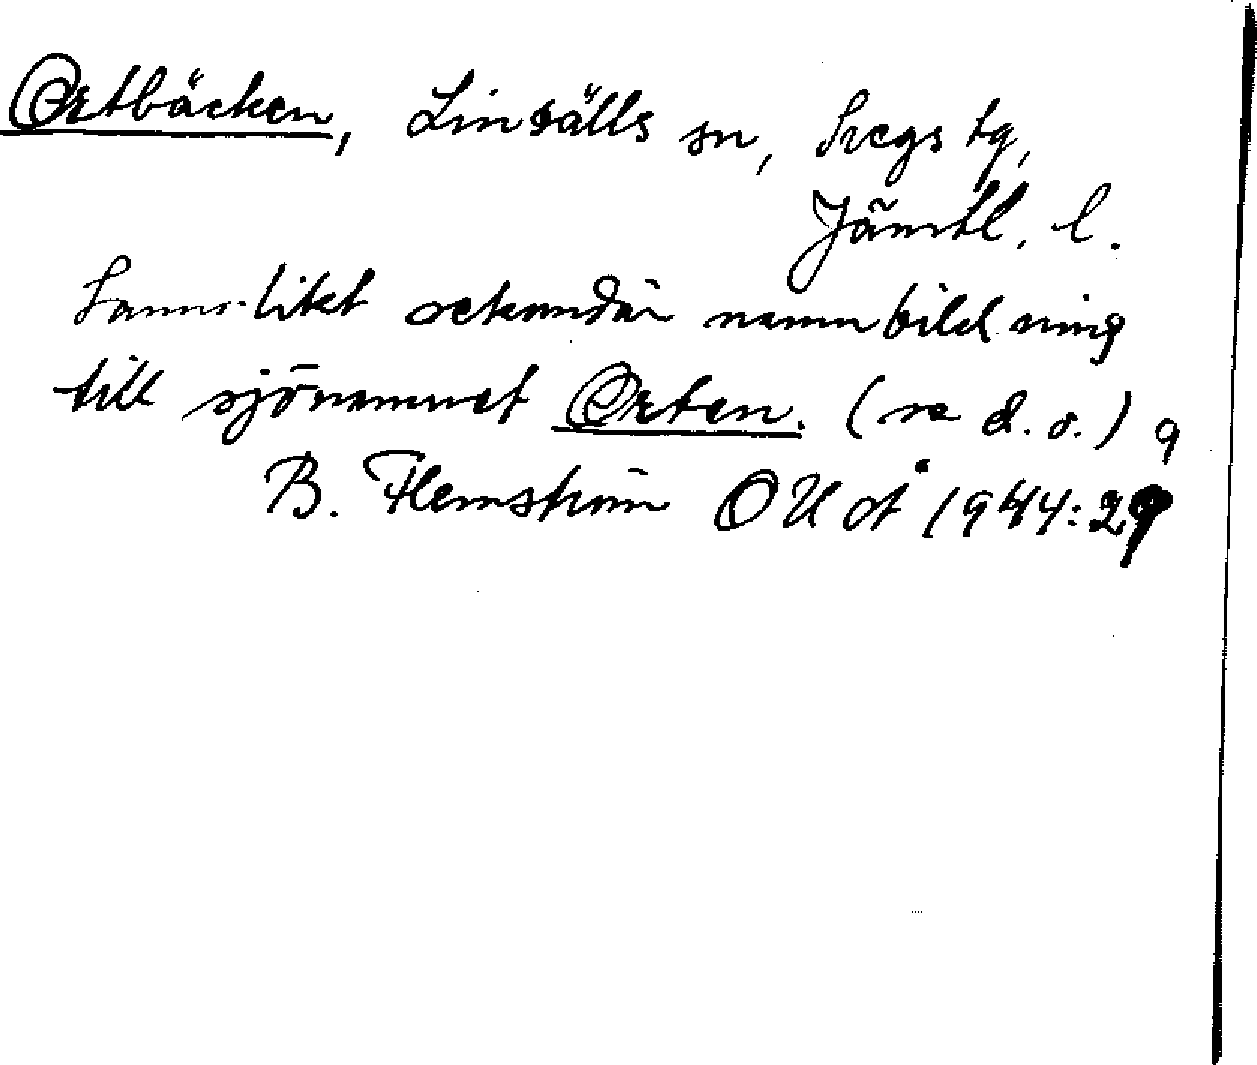 Ortbäcken, Linsälls sn, Svegs tg,
Jämtl. l.
Sannolikt sekundär namnbildning
till sjönamnet Orten. (se d. o.)
B. Flemström OUÅ 1944: 29
9